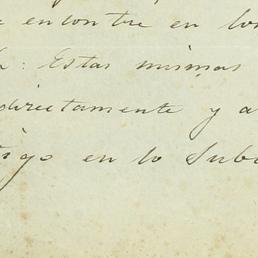 encontre en
: Estas mismas
directamente y a
tigo en lo Sub